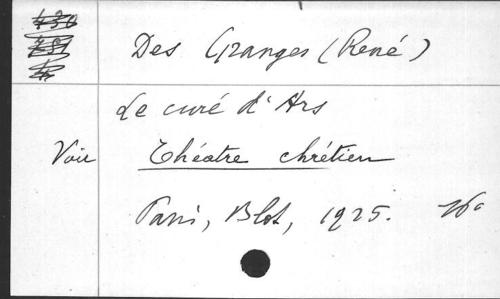 Des Granges (René)
Le curé d'Ars
Voir Théatre chrétien
Paris, Blot, 1925.